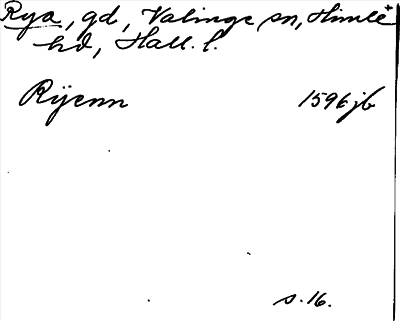 Rya, gd, Valinge sn, Himle
hd, Hall. l.
Rÿenn 1596 jb
s. 16.